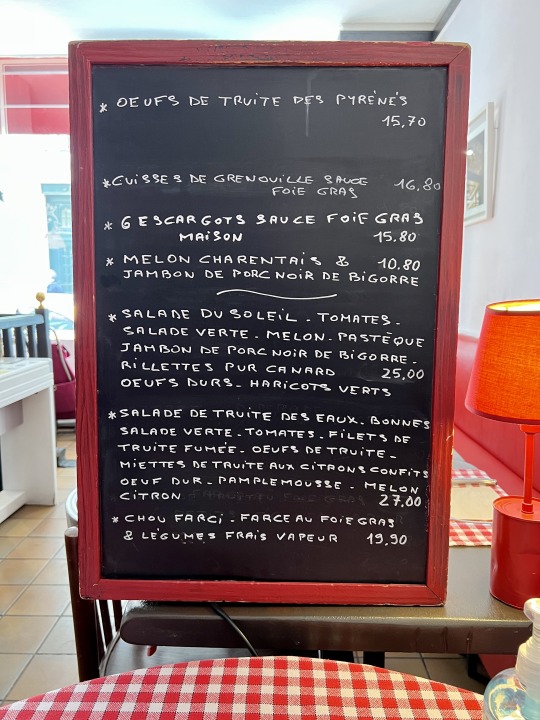 * OEUFS DE TRUITE DES PYRÉNÉS
15,70
* CUISSES DE GRENOUILLE SAUCE 16,80
FOIE GRAS
* 6 ESCARGOTS SAUCE FOIE GRAS
MAISON 15.80
* MELON CHARENTAIS & 10.80
JAMBON DE PORC NOIR DE BIGORRE
* SALADE DU SOLEIL - TOMATES -
SALADE VERTE - MELON - PASTÈQUE
JAMBON DE PORC NOIR DE BIGORRE -
RILLETTES PUR CANARD 25,00
OEUFS DURS - HARICOTS VERTS
* SALADE DE TRUITE DES EAUX - BONNES
SALADE VERTE - TOMATES - FILETS DE
TRUITE FUMÉE - OEUFS DE TRUITE -
MIETTES DE TRUITE AUX CITRONS CONFITS
OEUF DUR - PAMPLEMOUSSE - MELON
CITRON 27,00
* CHOU FARCI - FARCE AU FOIE GRAS
& LÉGUMES FRAIS VAPEUR 19,90